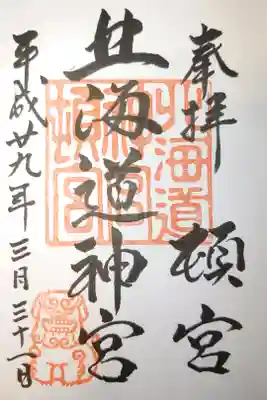 奉拝 頓宮
北海道神宮
平成廿九年三月三十一日
北海道神宮頓宮